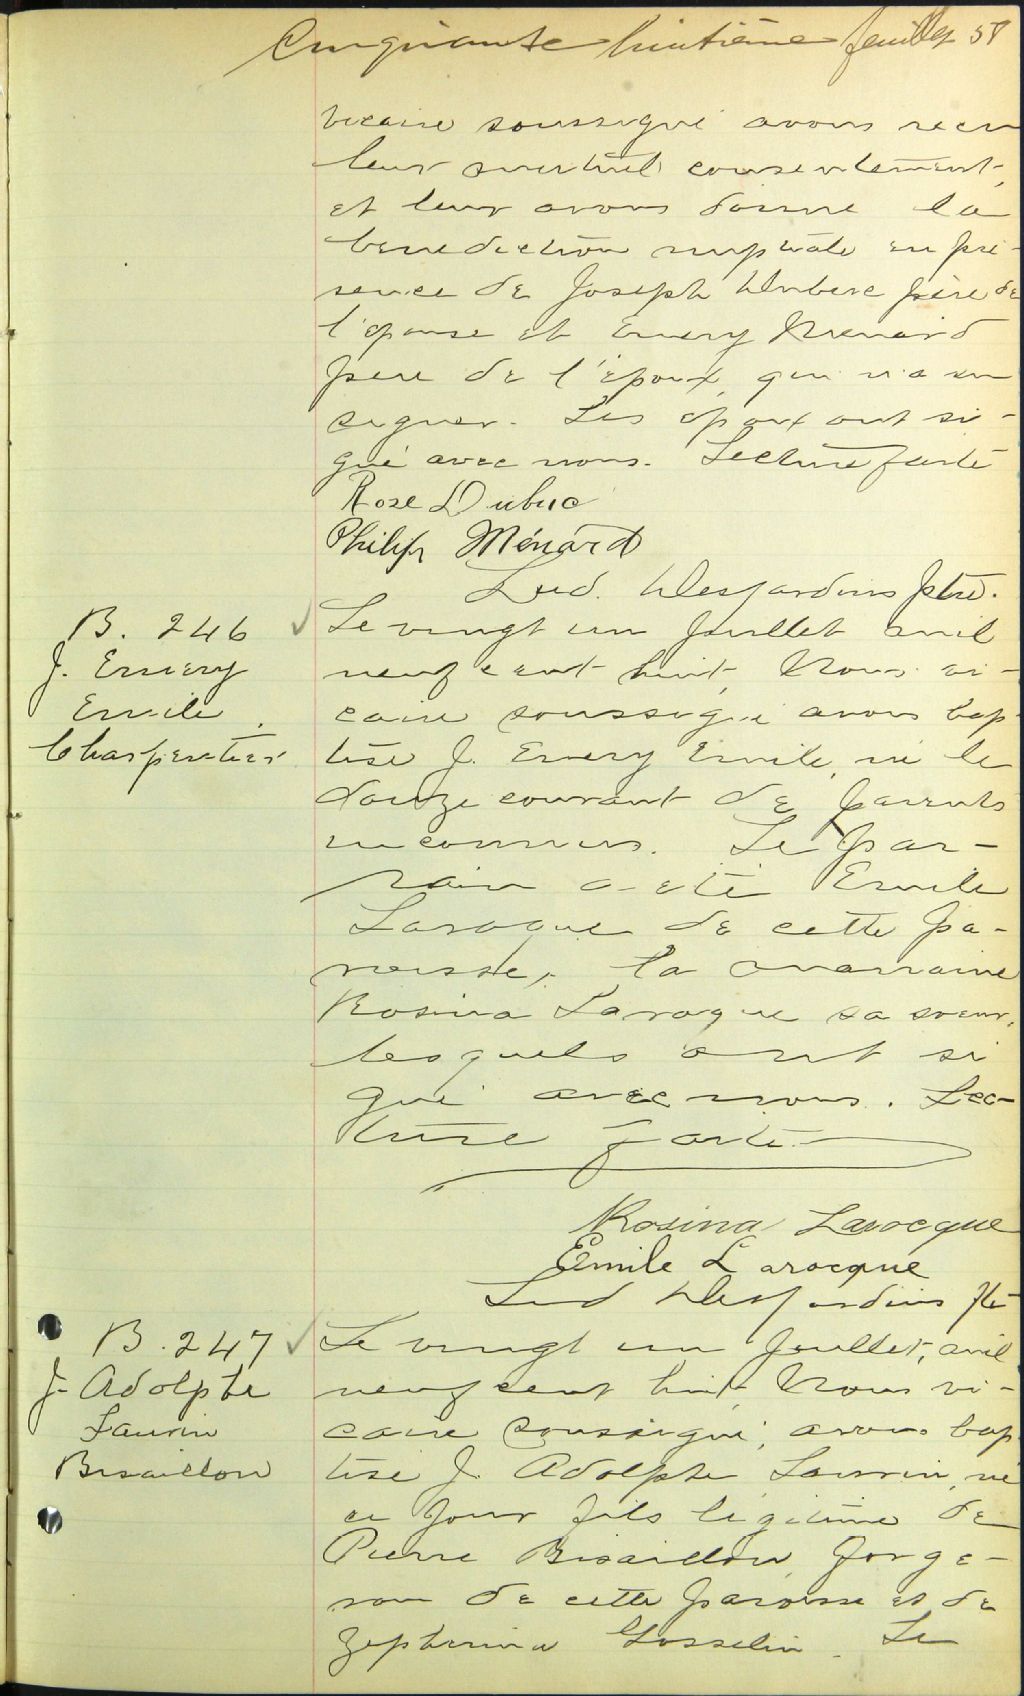 Cinquante huitième feuillet 58
vicaire soussigné avons reçu
leur mutuel consentement,
et leur avons donné la
bénédiction nuptiale en pré-
sence de Joseph Dubuc père de
l'épouse et Emery Ménard
père de l'époux, qui n'a su
signer. Les époux ont si-
gné avec nous. Lecture faite
Rose Dubuc
Philip Ménard
Lud. Desjardins Ptre.
B. 246
J. Emery
Emile
Charpentier
Le vingt un Juillet mil
neuf cent huit, Nous vi-
caire soussigné avons bap-
tisé J. Emery Emile, né le
douze courant de parents
inconnus. Le par-
rain a été Emile
Laroque de cette pa-
roisse, la marraine
Rosina Laroque sa soeur,
lesquels ont si
gné avec nous. Lec-
ture faite
Rosina Larocque
Emile Larocque
Lud Desjardins Ptre
B. 247
J. Adolphe
Laurin
Bisaillon
Le vingt un Juillet, mil
neuf cent huit Nous vi-
caire soussigné, avons bap-
tisé J. Adolphe Laurin, né
ce jour fils légitime de
Pierre Bisaillon, forge-
ron de cette paroisse et de
Zephirina Gosselin. Le